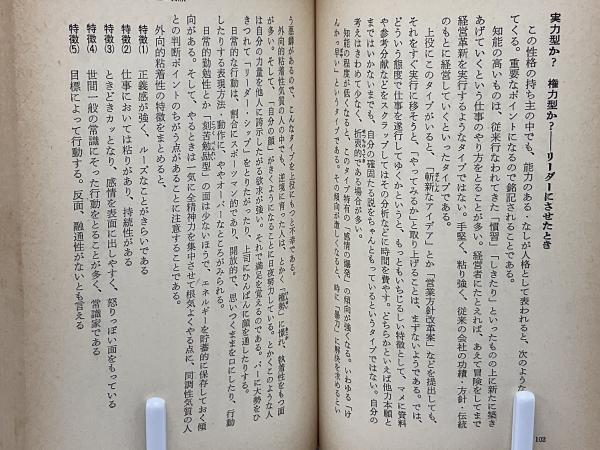 実力型か？　権力型か？――リーダーにさせたとき
この性格の持ち主の中でも、能力のある・なしが人格として表われると、次のような
てくる。重要なポイントになるので銘記されることである。
知能の高いものは、従来行なわれてきた「慣習」「しきたり」といったものの上に新たに築き
あげていくという仕事のやり方をとることが多い。経営者にたとえれば、あえて冒険をしてまで
経営革新を実行するようなタイプではない。手堅く、粘り強く、従来の会社の功績・方針・伝統
のもとに経営していくといったタイプである。
上役にこのタイプがいると、「斬新なアイデア」とか「営業方針改革案」などを提出しても、
それをすぐ実行に移そうと、「やってみるか」と取り上げることは、まずないようである。では、
どういう態度で仕事を遂行してゆくかというと、もっともいちじるしい特徴として、マメに資料
や参考分献などをスクラップしてはその分析などに時間を費やす。どちらかといえば他力本願と
まではいかないまでも、自分の確固たる説をちゃんともっているというタイプではない。自分の
考えはきわめて少なく、折衷的である場合が多い。
知能の程度が低くなると、このタイプ特有の「感情の爆発」の傾向が強くなる。いわゆる「け
んかっ早い」というタイプである。その傾向が激しくなると、時に「暴力」に解決を求めるとい
102
う悪癖があるので、こんなタイプを上役にもつと不幸である。
外向的粘着性気質の人の中でも、逆境に育った人は、とかく「権勢」に憬れ、執着性をもつ面
が多い。そして、「自分の顔」がきくようになることに日夜努力している。とかくこのような人
は自分の力量を他人に誇示したがる欲求が強い。それで満足を覚えるのである。バーに大勢をひ
きつれて「リーダー・シップ」をとりたがったり、上司にひんぱんに顔を通したりする。
日常的な行動は、割合にスポーツマン的であり、開放的で、思いつくままを口にしたり、行動
したりする表現方法・動作に、ややオーバーなところがみられる。
日常的勤勉性とか「刻苦勉励型」の面は少ないほうで、エネルギーを貯蓄的に保存しておく傾
向がある。そして、やるときは一気に全精神力を集中させて根気よくやる点に、同調性気質の人
との判断ポイントのちがう点があることに注意することである。
外向的粘着性の特徴をまとめると、
特徴(1)　正義感が強く、ルーズなことがきらいである
特徴(2)　仕事においては粘りがあり、持続性がある
特徴(3)　ときどきカッとなり、感情を表面に出しやすく、怒りっぽい面をもっている
特徴(4)　世間一般の常識にそった行動をとることが多く、常識家である
特徴(5)　目標によって行動する。反面、融通性がないとも言える